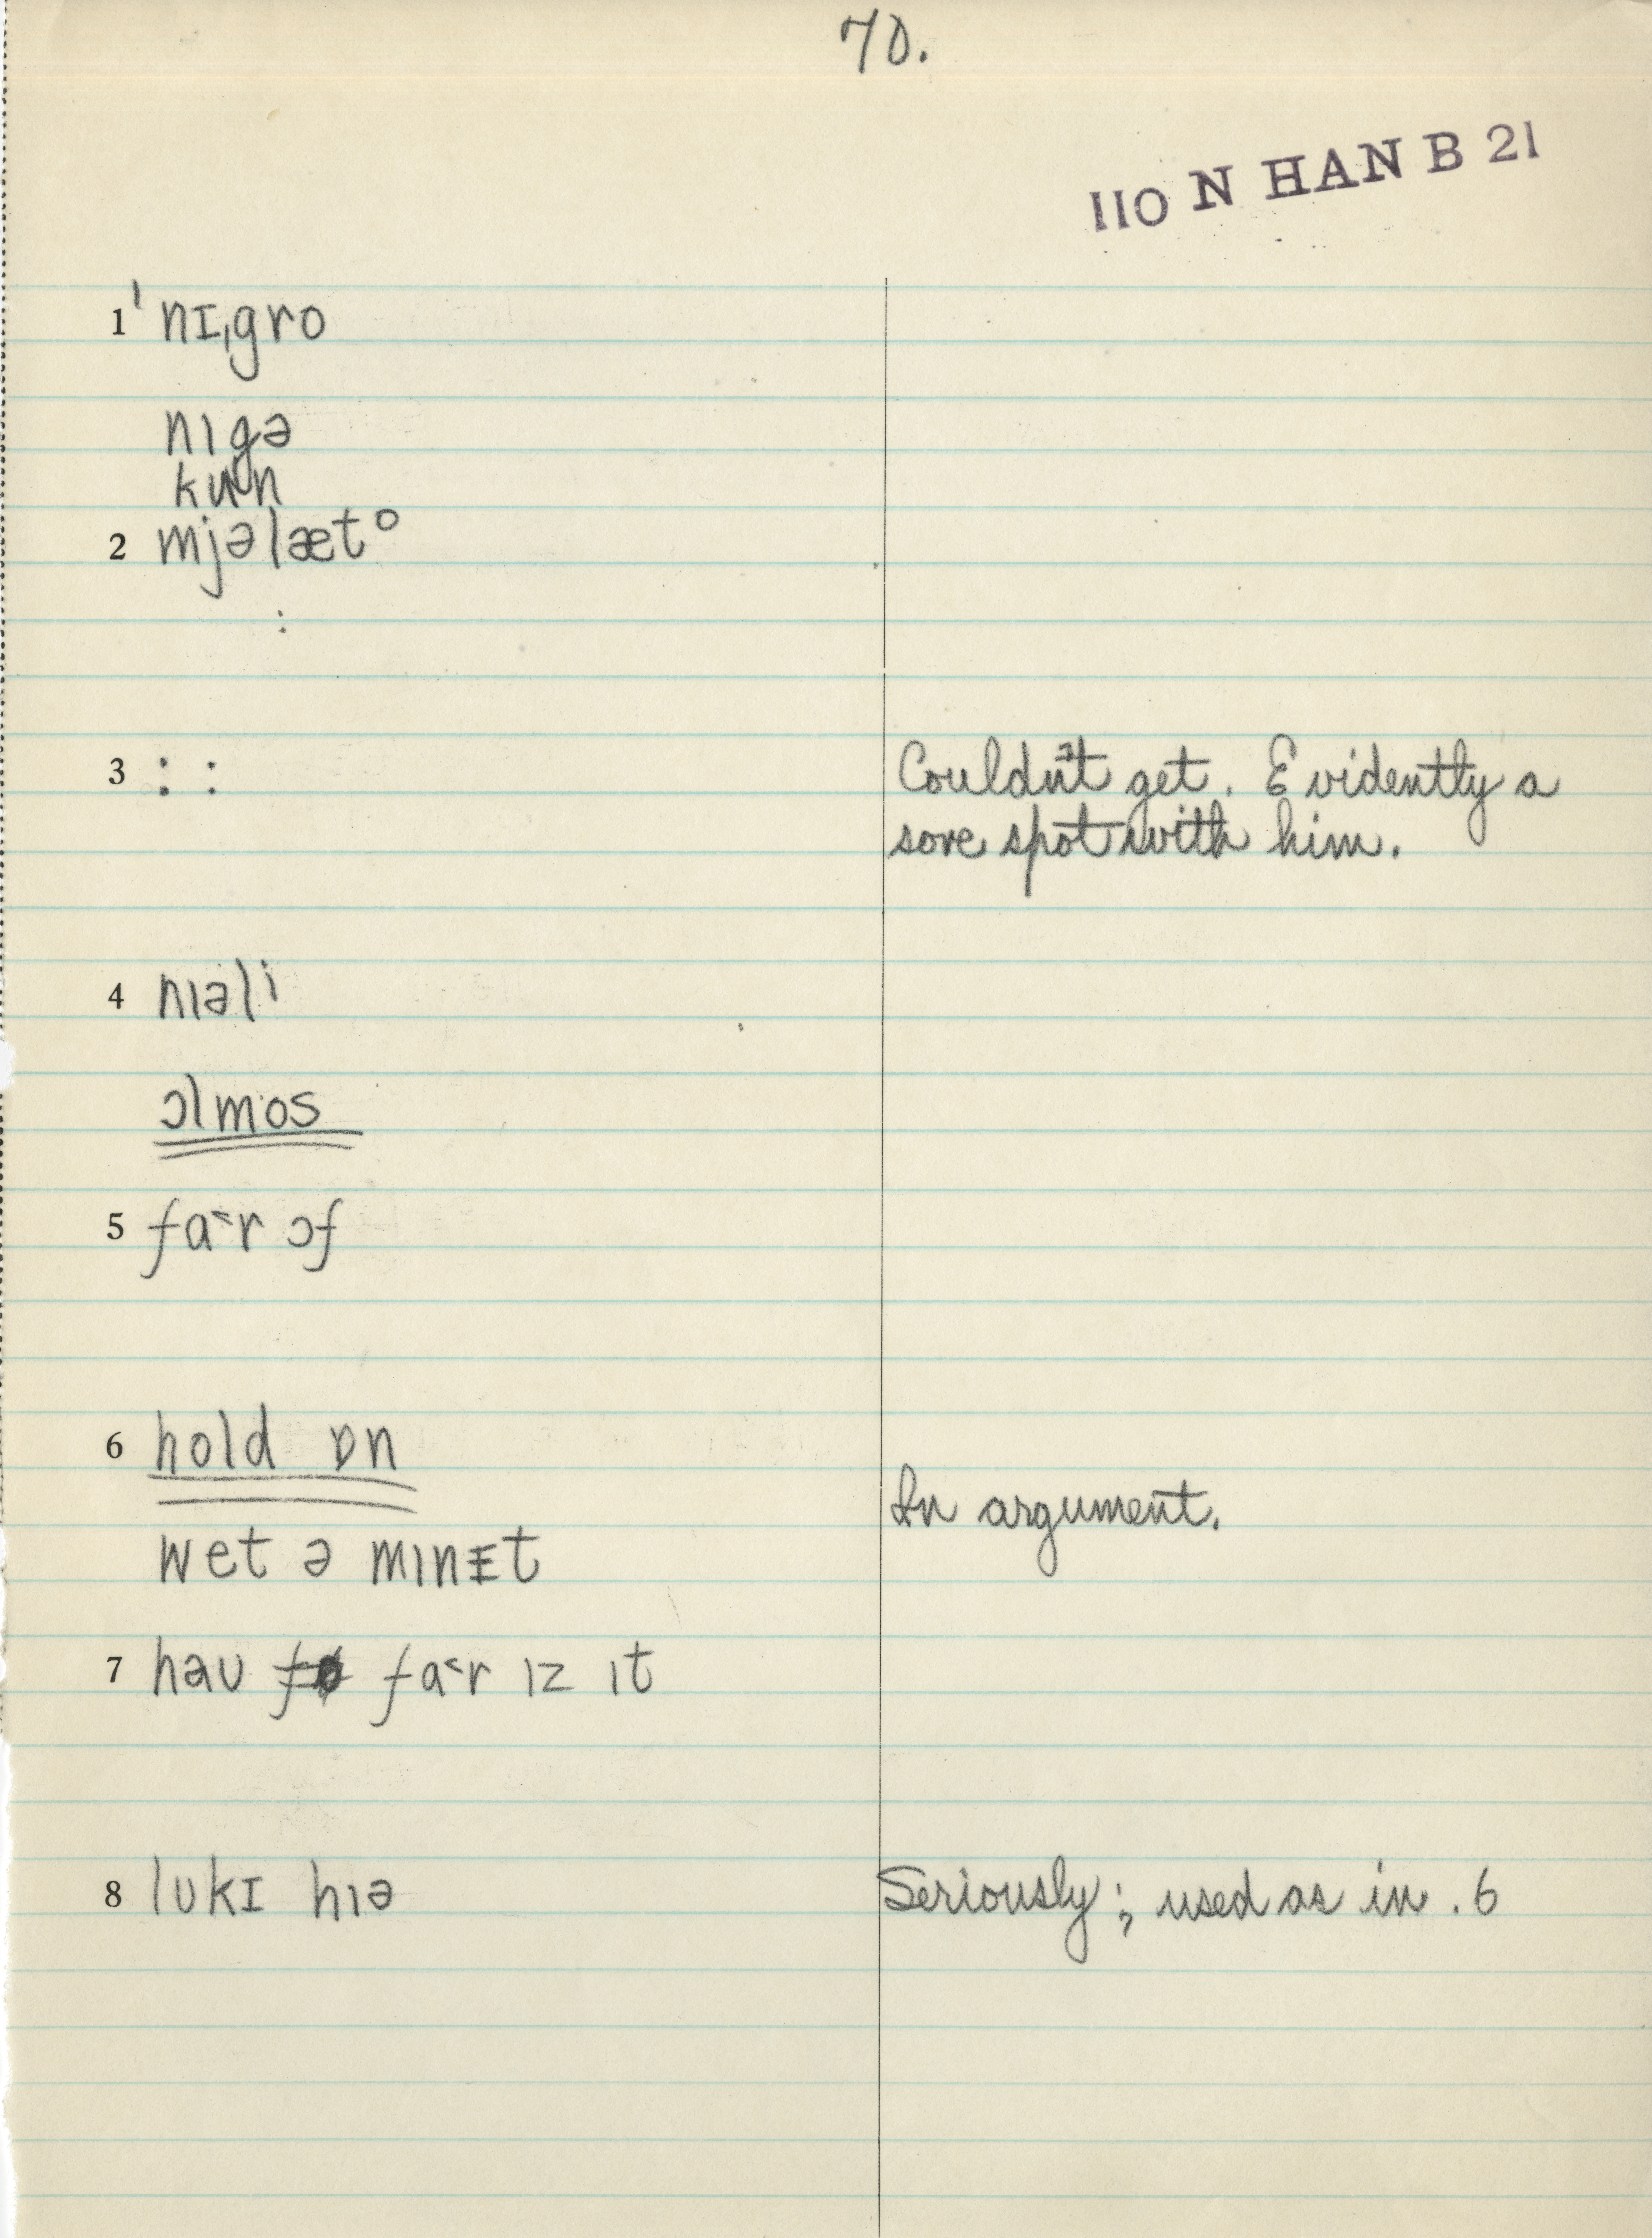 70.
110 N HAN B 21
1 ˈnɪˌgro
nɪgə
kun
2 mjəlæto
:
3 : : Couldn't get. Evidently a
sore spot with him.
4 nɪəli
ɔlmos
5 fa˂r ɔf
6 hold ɒn
In argument.
wet ə mɪnɪt
7 həu fa˂r ɪz ɪt
8 lukɪ hɪə Seriously; used as in .6